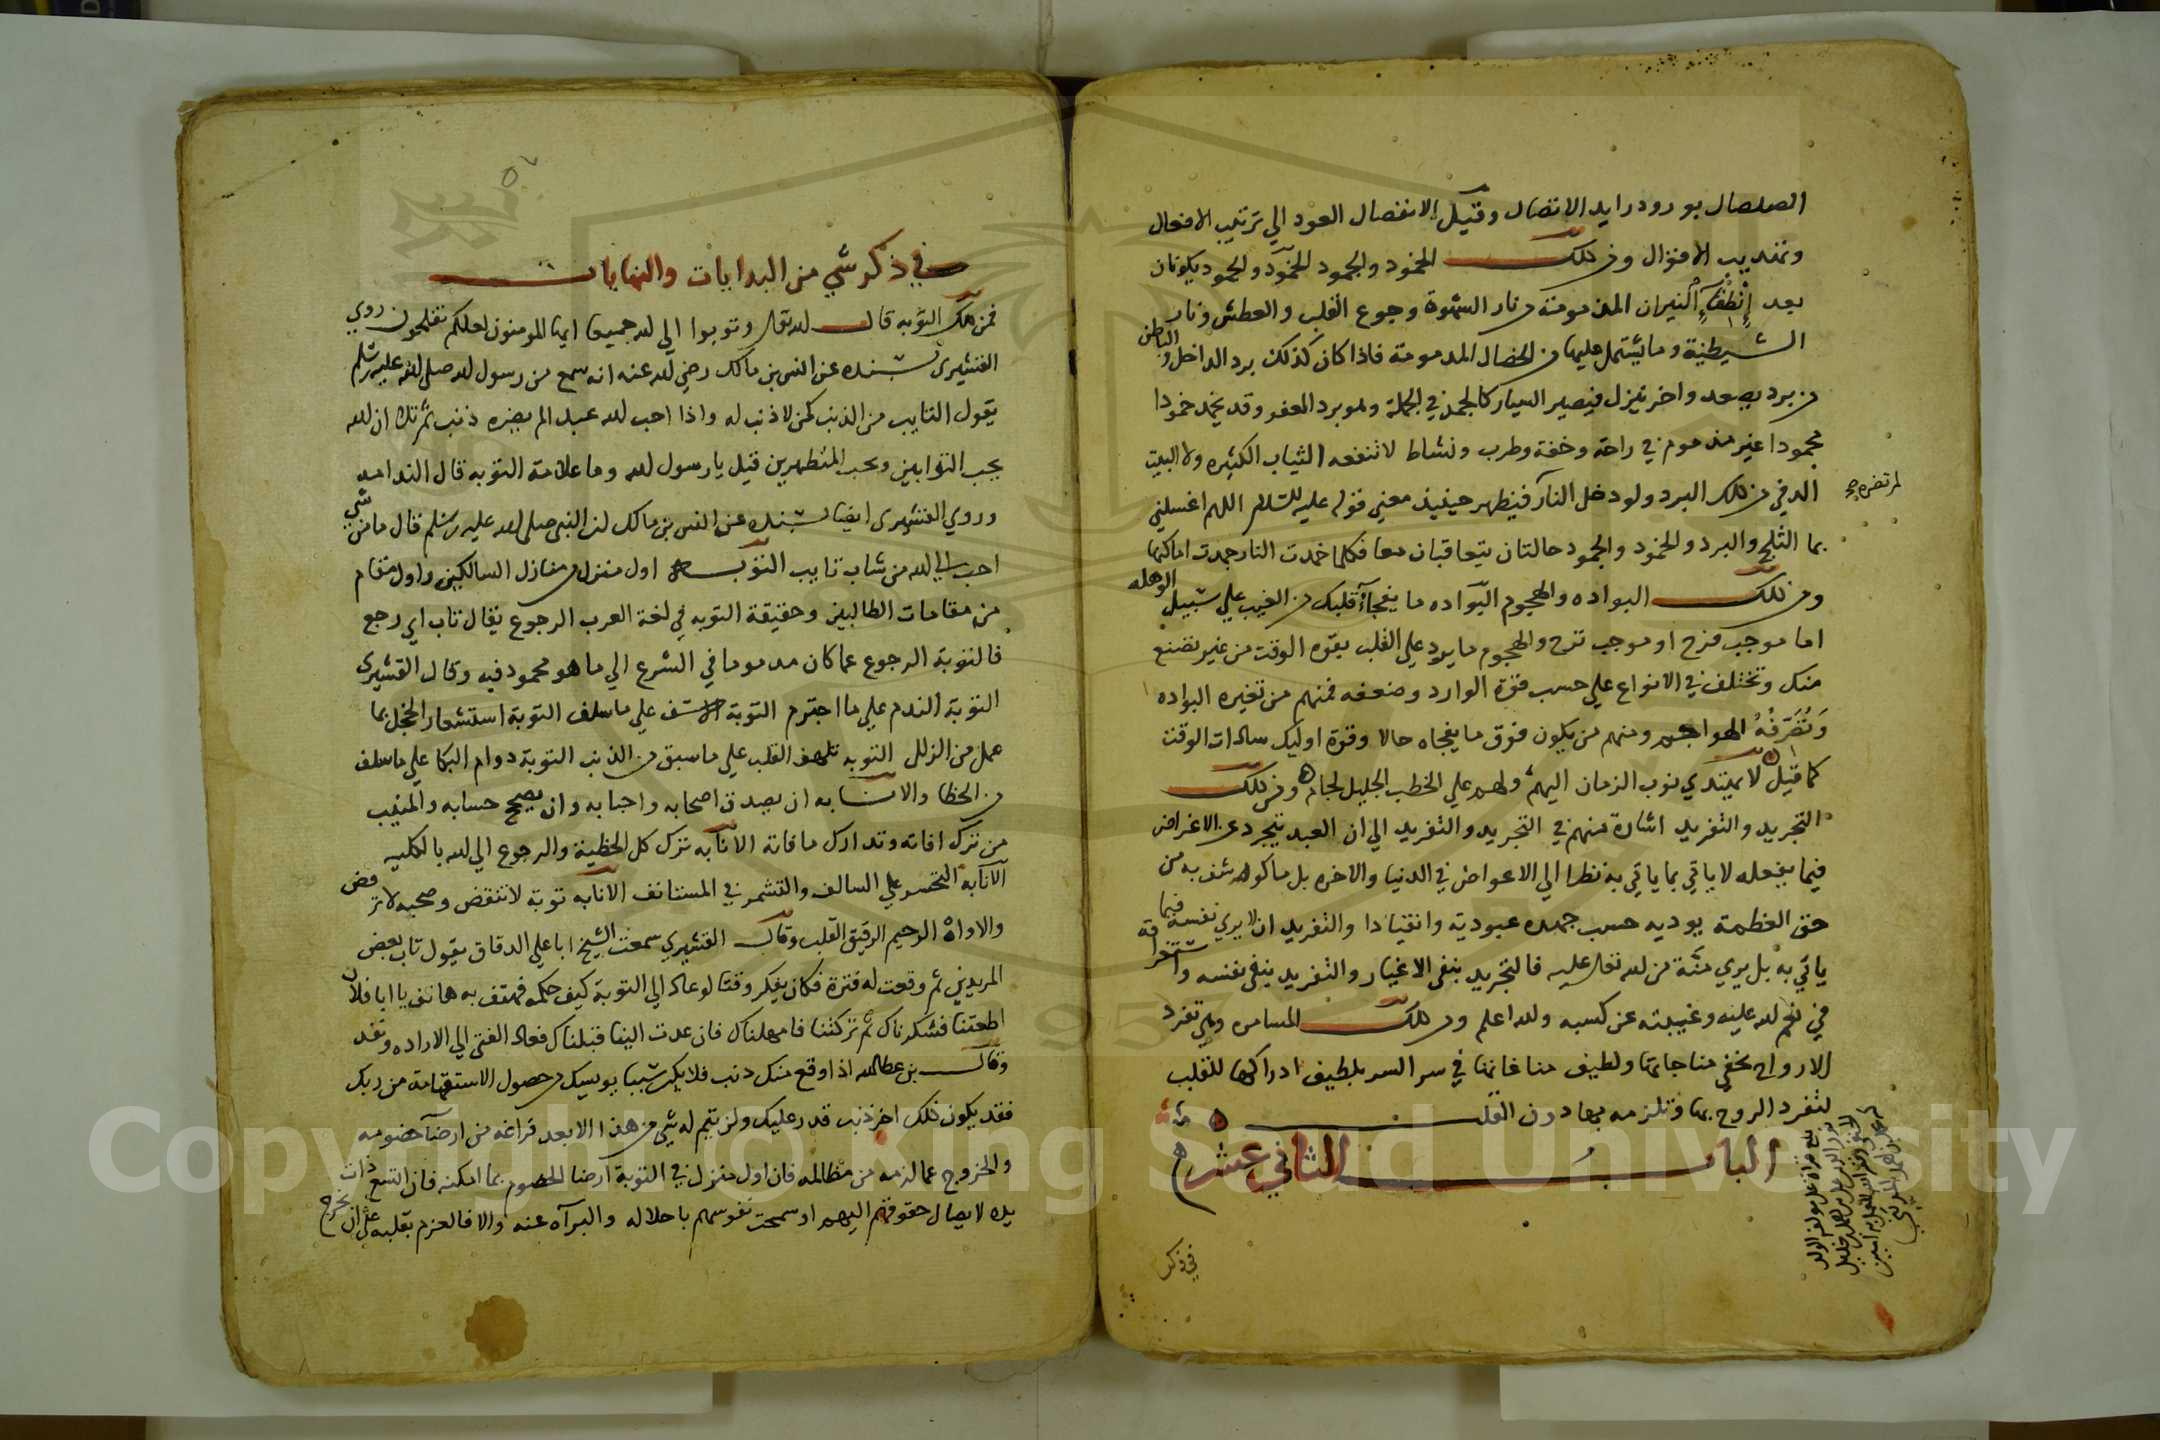 الصلصال بورود رايد الاتصال وقيل الانفصال العود الي ترتيب الافعال
وتهذيب الاقوال ومن ذلك الخمود والجمود الخمود والجمود يكونان
بعد إنْطِفَآءِ النيران المذمومة من نار الشهوة وجوع القلب والعطش ونار
الشيطنية وما يشتمل عليها من الخصال المذمومة فاذا كان كذلك برد الداخل والباطن
من برد يصعد واخر ينزل فيصير السيار كالجمد في الجملة وهو برد العفو وقد يخمد خمودا
محمودا غير مذموم في راحة وخفة وطرب ونشاط لا تنفعه الثياب الكثيره ولا البيت
الدفي من ذلك البرد ولو دخل النار لم تضره صح فيظهر حينيذ معني قوله عليه السلام اللهم اغسلني
بما الثلج والبرد والخمود والجمود حالتان يتعاقبان معا فكلما خمدت النار جمدت اماكنها
ومن ذلك البواده والهجوم البواده ما يفجأ قلبك من الغيب علي سبيل الوهله
اما موجب فرح او موجب ترح والهجوم ما يرد علي القلب بقوه الوقت من غير تصنع
منك وتختلف في الانواع علي حسب قوة الوارد وضعفه فمنهم من تغيره البواده
وَتُصَرِّفُهُ الهواجم ومنهم من يكون فوق ما يفجاه حالا وقوة اوليك سادات الوقت
كما قيل لا تهتدي نوب الزمان اليهم ولهم علي الخطب الجليل لجام ومن ذلك
التجريد والتفريد اشارة منهم في التجريد والتفريد الي ان العبد يتجرد عن الاغراض
فيما يفعله لا ياتي بما ياتي به نظرا الي الاعواض في الدنيا والاخره بل ما كوشف به من
حق العظمة يوديه حسب جهده عبودية وانقيادا والتفريد ان لا يري نفسه فيما
ياتي به بل يري منة من الله تعالى عليه فالتجريد ينفي الاغيار والتفريد ينفي نفسه واستغراقه
في نعم الله عليه وغيبته عن كسبه والله اعلم ومن ذلك المسامره وهي تفرد
الارواح بخفي مناجاتها ولطيف مناغاتها في سر السر بلطيف ادراكها للقلب
لتفرد الروح بها وتلزمه بها دون القلب
الباب الثاني عشر
بلغ قراة علي مولفه الولد
في ذكر
في ذكر شي من البدايات والنهايات
فمن ذلك التوبه قال الله تعالى وتوبوا الي الله جميعا ايها المومنون لعلكم تفلحون روي
القشيري بسنده عن انس بن مالك رضي الله عنه انه سمع من رسول الله صلى الله عليه وسلم
يقول التايب من الذنب كمن لا ذنب له واذا احب الله عبدا لم يضره ذنب ثم تلا ان الله
يحب التوابين ويحب المتطهرين قيل يا رسول الله وما علامة التوبه قال الندامه
وروي القشيري ايضا بسنده عن انس بن مالك ان النبي صلى الله عليه وسلم قال ما من شي
احب الي الله من شاب تايب التوبه اول منزل من منازل السالكين واول مقام
من مقامات الطالبين وحقيقة التوبه في لغة العرب الرجوع يقال تاب اي رجع
فالتوبة الرجوع عما كان مذموما في الشرع الي ما هو محمود فيه وقال القشيري
التوبة الندم علي ما اجترم التوبة الاسف علي ما سلف التوبة استشعار الخجل بما
عمل من الزلل التوبه تلهف القلب علي ما سبق من الذنب التوبة دوام البكا علي ما سلف
من الخطا والانابه ان يصدق اصحابه واحبابه وان يصحح حسابه والمنيب
من ترك افاته وتدارك ما فاته الانابه ترك كل الخطية والرجوع الي الله بالكليه
الانابه التحسر علي السالف والتشمر في المستانف الانابه توبة لا تنتقض وصحبه لا ترفض
والاواه الرحيم الرقيق القلب وقال القشيري سمعت الشيخ ابا علي الدقاق يقول تاب بعض
المريدين ثم وقعت له فترة فكان يفكر وقتا لو عاد الي التوبة كيف حكمه فهتف به هاتف يا ابا فلان
اطعتنا فشكرناك ثم تركتنا فامهلناك فان عدت الينا قبلناك فعاد الفتى الي الاراده ونفد
وقال بن عطا الله اذا وقع منك ذنب فلا يكن سببا يويسك من حصول الاستقامة من ربك
فقد يكون ذلك اخر ذنب قدر عليك ولن يتم له شي من هذا الا بعد فراغه من ارضآ خصومه
والخروج عما لزمه من مظالمه فان اول منزل في التوبة ارضا الخصوم بما امكنه فان اتسع ذات
يده لايصال حقوقهم اليهم او سمحت نفوسهم باحلاله والبرآه عنه والا فالعزم بقلبه علي ان يخرج